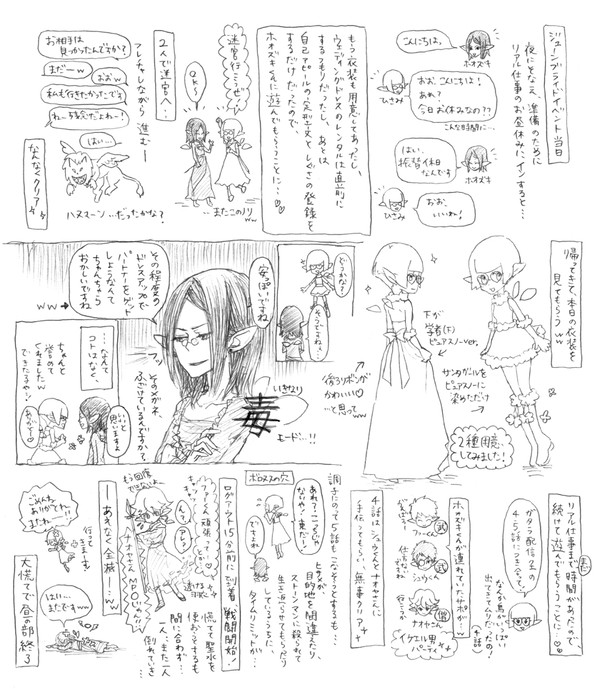 ジューンブライドイベント当日
夜にそなえ、準備のために
リアル仕事のお昼休みにインすると…
こんにちは。
ホオズキ
おお、こんにちは!
あれ?
今日お休みなの??
こんな時間に…
ひさみ
はい、
振替休日
なんです
ホオズキ
おお、
いいね!
ひさみ
もう衣装も用意してあったし、
ウェディングドレスのレンタルは直前に
するつもりだったし、あとは
自己アピールの定型文としぐさの登録を
するだけだったので、
ホオズキくんに遊んでもらうことに…♡
迷宮行こーぜー
OKー♪
…またこのノリ
ww
2人で迷宮へ…
お相手は
見つかったんですか?
まだーw
おおw
私も行きたかったです
ねーっ残念だよねー!
フレチャしながら進むー
はい…
ハヌマーン…だったかな?
なんなくクリア
帰ってきて、本日の衣装を
見てもらうww
下が
学者(下)
ピュアスノーver.
サンタガールを
ピュアスノーに
染めただけ
後ろリボンが
かわいい!
…と思ってww
2種用意
してみました!
どうかな?
そうですね…
安っぽいですね
いきなり
毒
モード…!!
フッ
そのメガネ、
ふざけているんですか?
その程度の
ドレスアップで
パートナーをゲット
しようなんて
ちゃんちゃら
おかしいですね
ww
…なんて
コトはなく、
ちゃんと
誉めて
くれましたw
できた子だ!
いいと
思いますよ
ありがとう♡
リアル仕事まで時間があったので、
続けて遊んでもらうことに…♡
ガタラ配信クエの
4、5話につきあって!
なんか鳥がいっぱい
出てきてムリだったの!
4話
ホオズキくんが連れていたサポがw
武
武
僧
シュウくん
ナオヤさん
イケエル男
パーティ
4話はシュウくんとナオヤさんに
手伝ってもらい、無事クリア
調子にのって5話もこなそうとするも…
ボロヌスの穴
あれ?ここじゃ
ないや…東だー!
ですよね
目的地を間違えたり、
ストーンマンに殺られて
生き返らせてもらったり
しているうちに、
タイムリミットが…
ログアウト15分前に到着!戦闘開始!
慌てて聖水を
使おうとするも
間に合わず…
一人、また一人
倒れていき
もう回復
できないよ…
ナオヤさん
MP0じゃんーっ
ーあえなく全滅ー…w
ごめんね、
ありがとね、
またねー
行って
きまーす
はい…
またですw
大慌てで昼の部終了